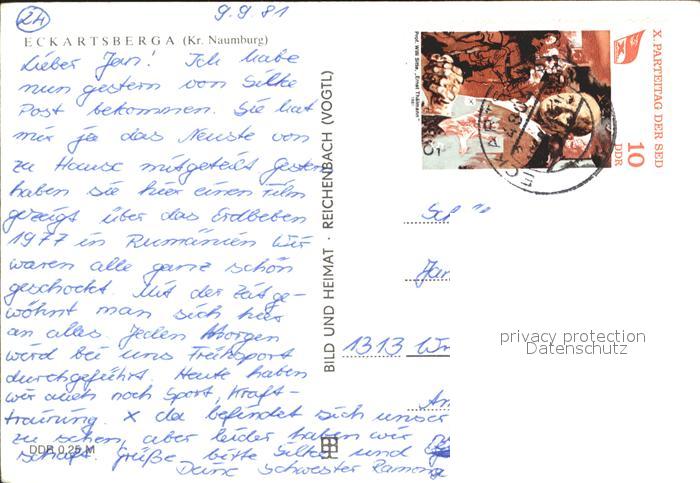 24
9.9.81
ECKARTSBERGA (Kr. Naumburg)
Lieber Jan! Ich habe
nun gestern von Silke
Post bekommen. Sie hat
mir ja das Neuste von
zu Hause mitgeteilt gestern
haben sie hier einen Film
gezeigt über das Erdbeben
1977 in Rumänien Wir
waren alle ganz schön
geschockt. Mit der Zeit ge-
wöhnt man sich hier
an alles. Jeden Morgen
wird bei uns Frühsport
durchgeführt. Heute haben
wir auch noch Sport, Kraft-
training. x da befindet sich unser
zu sehen, aber leider haben wir
schaft. Grüße bitte Silke und
Deine Schwester Ramona
DDR 0,25 M
BILD UND HEIMAT · REICHENBACH (VOGTL)
Prof. Willi Sitte, „Ernst Thälmann"
1981
X. PARTEITAG DER SED
10
DDR
Jan
1313 Wr
An
privacy protection
Datenschutz